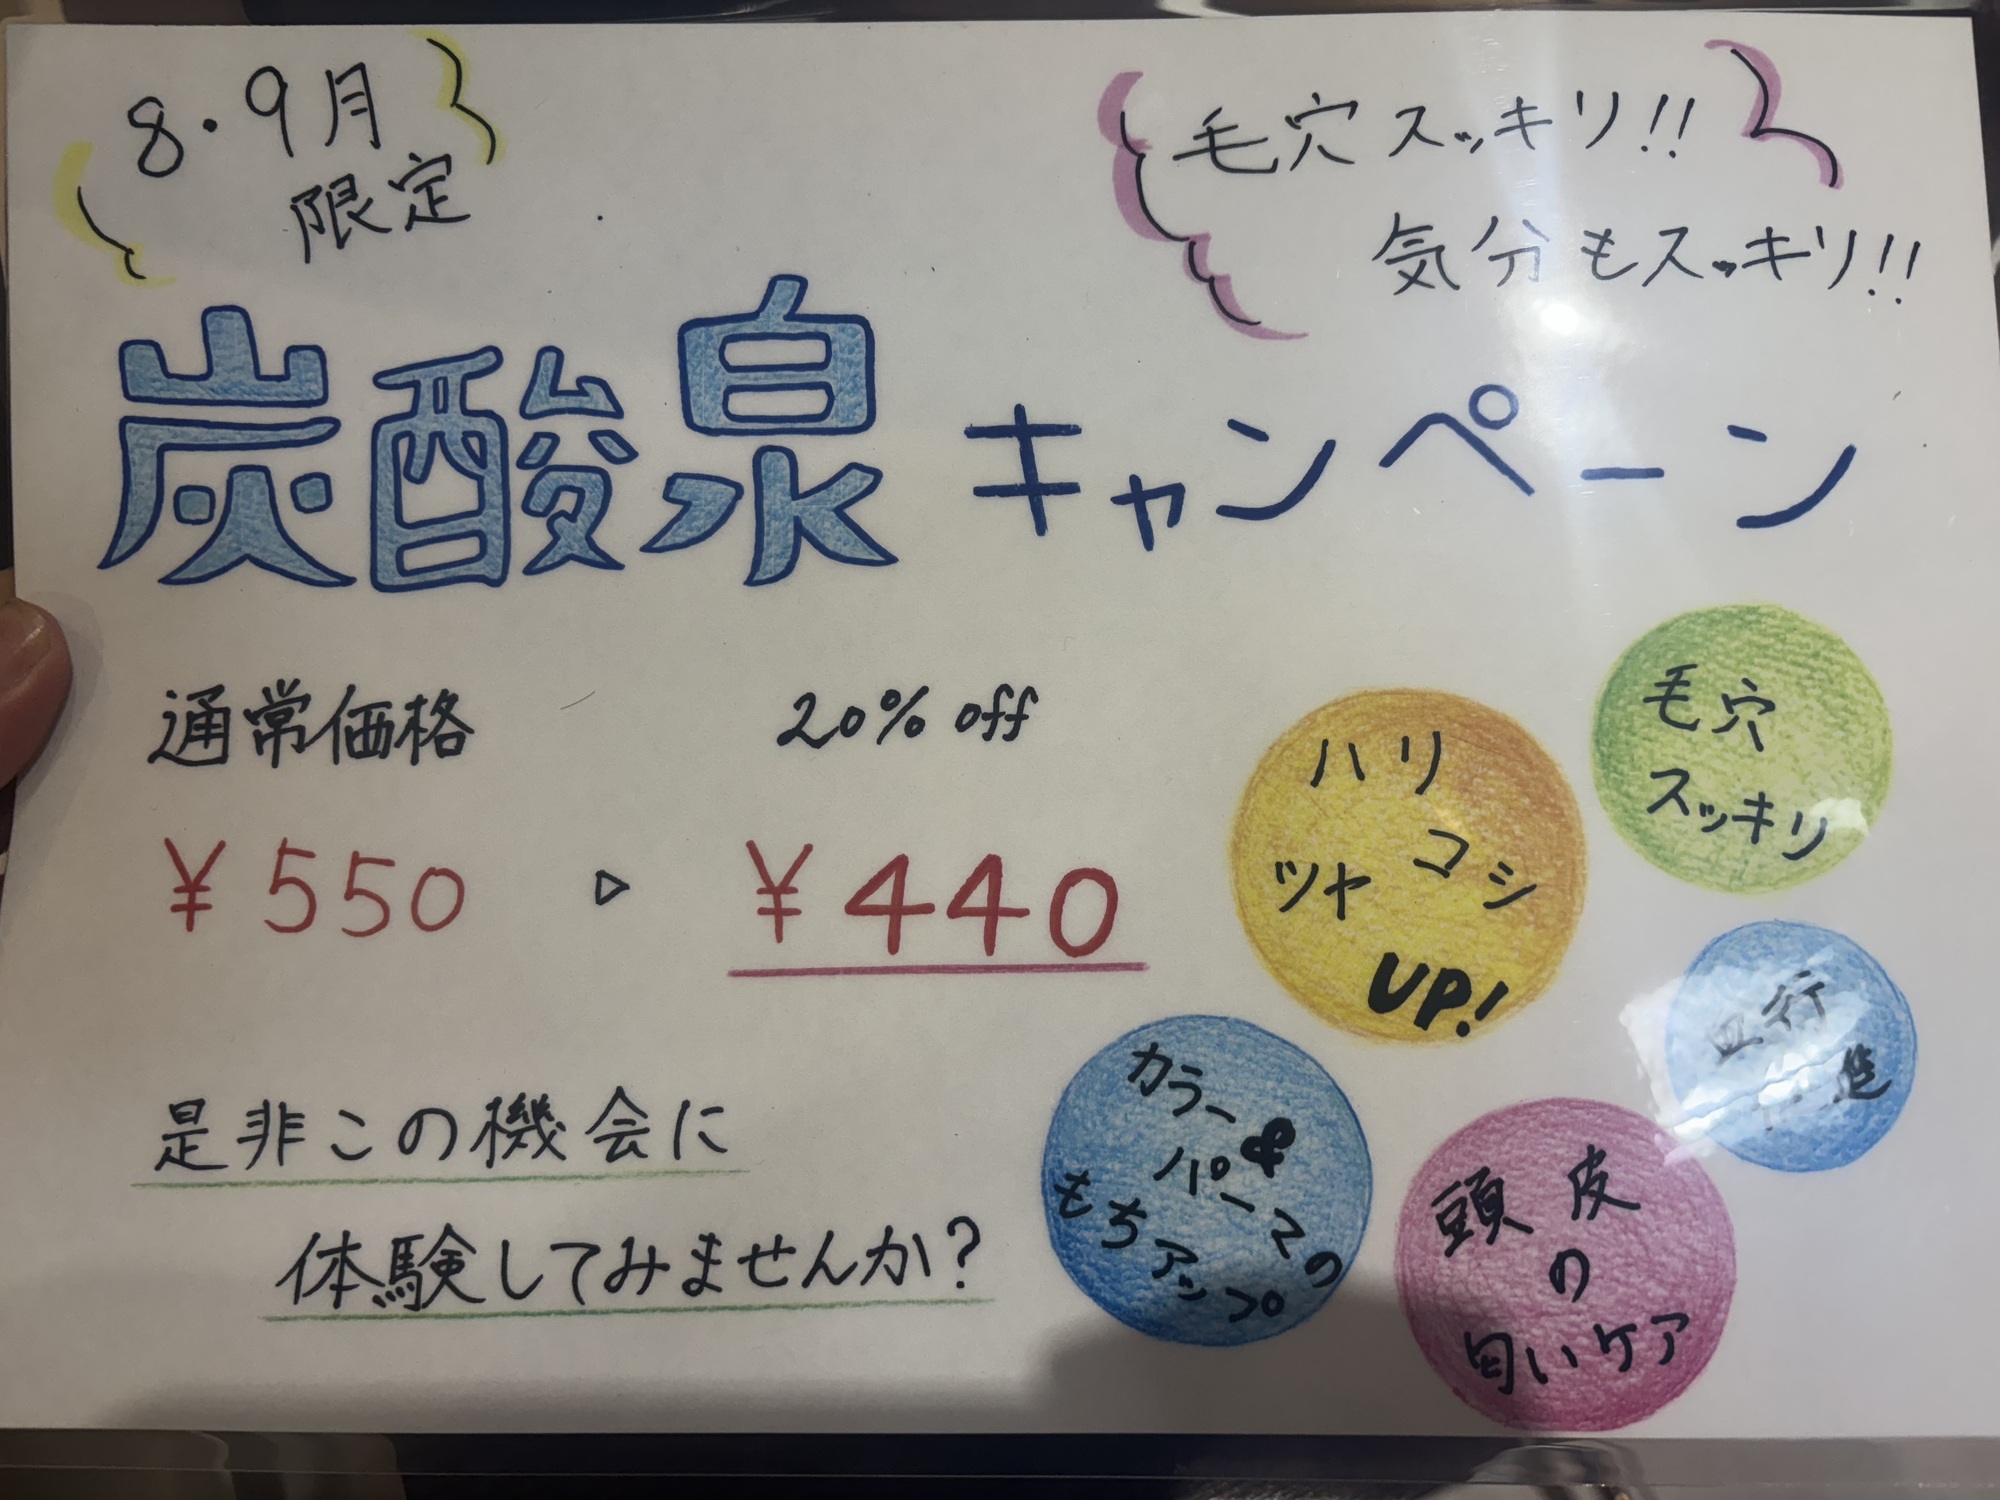 8・9月
限定
毛穴スッキリ!!
気分もスッキリ!!
炭酸泉キャンペーン
通常価格
20% off
¥550 ▷ ¥440
是非この機会に
体験してみませんか?
毛穴
スッキリ
ハリ
コシ
ツヤ
UP!
血行
進
カラー&
パーマの
もちアップ
頭皮
の
匂いケア